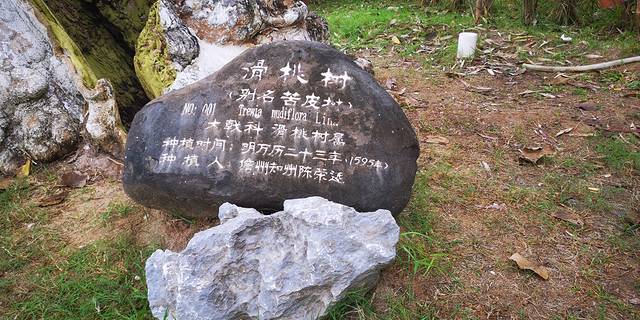 滑桃树
(别名 苦皮树)
NO: 001 Trewia nudiflora Lin..
大戟科 滑桃树属
种植时间：明万历二十三年(1595年)
种植人 儋州知州陈荣选